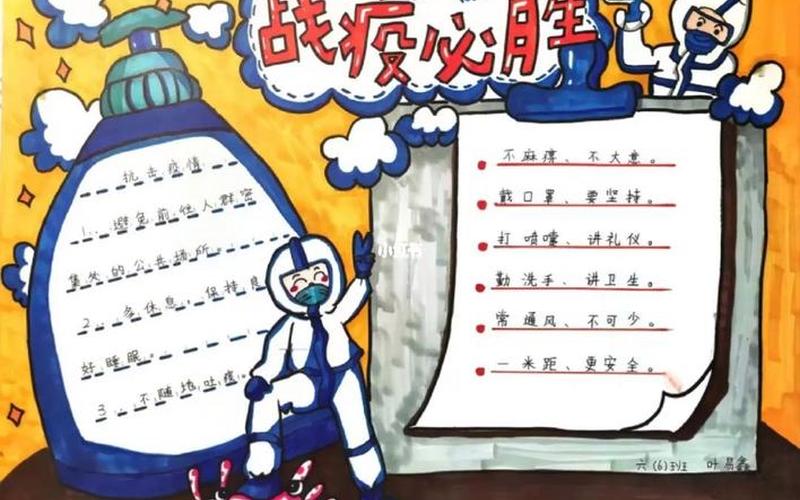 战疫必胜
抗击疫情
1、避免前往人群密
集然的公共场所。
2、多休息，保持良
好睡眠。
3、不随地吐痰。
小红书
不麻痹、不大意。
戴口罩、要坚持。
打喷嚏、讲礼仪。
勤洗手、讲卫生。
常通风、不可少。
一米距、更安全。
六(6)班 叶易鑫